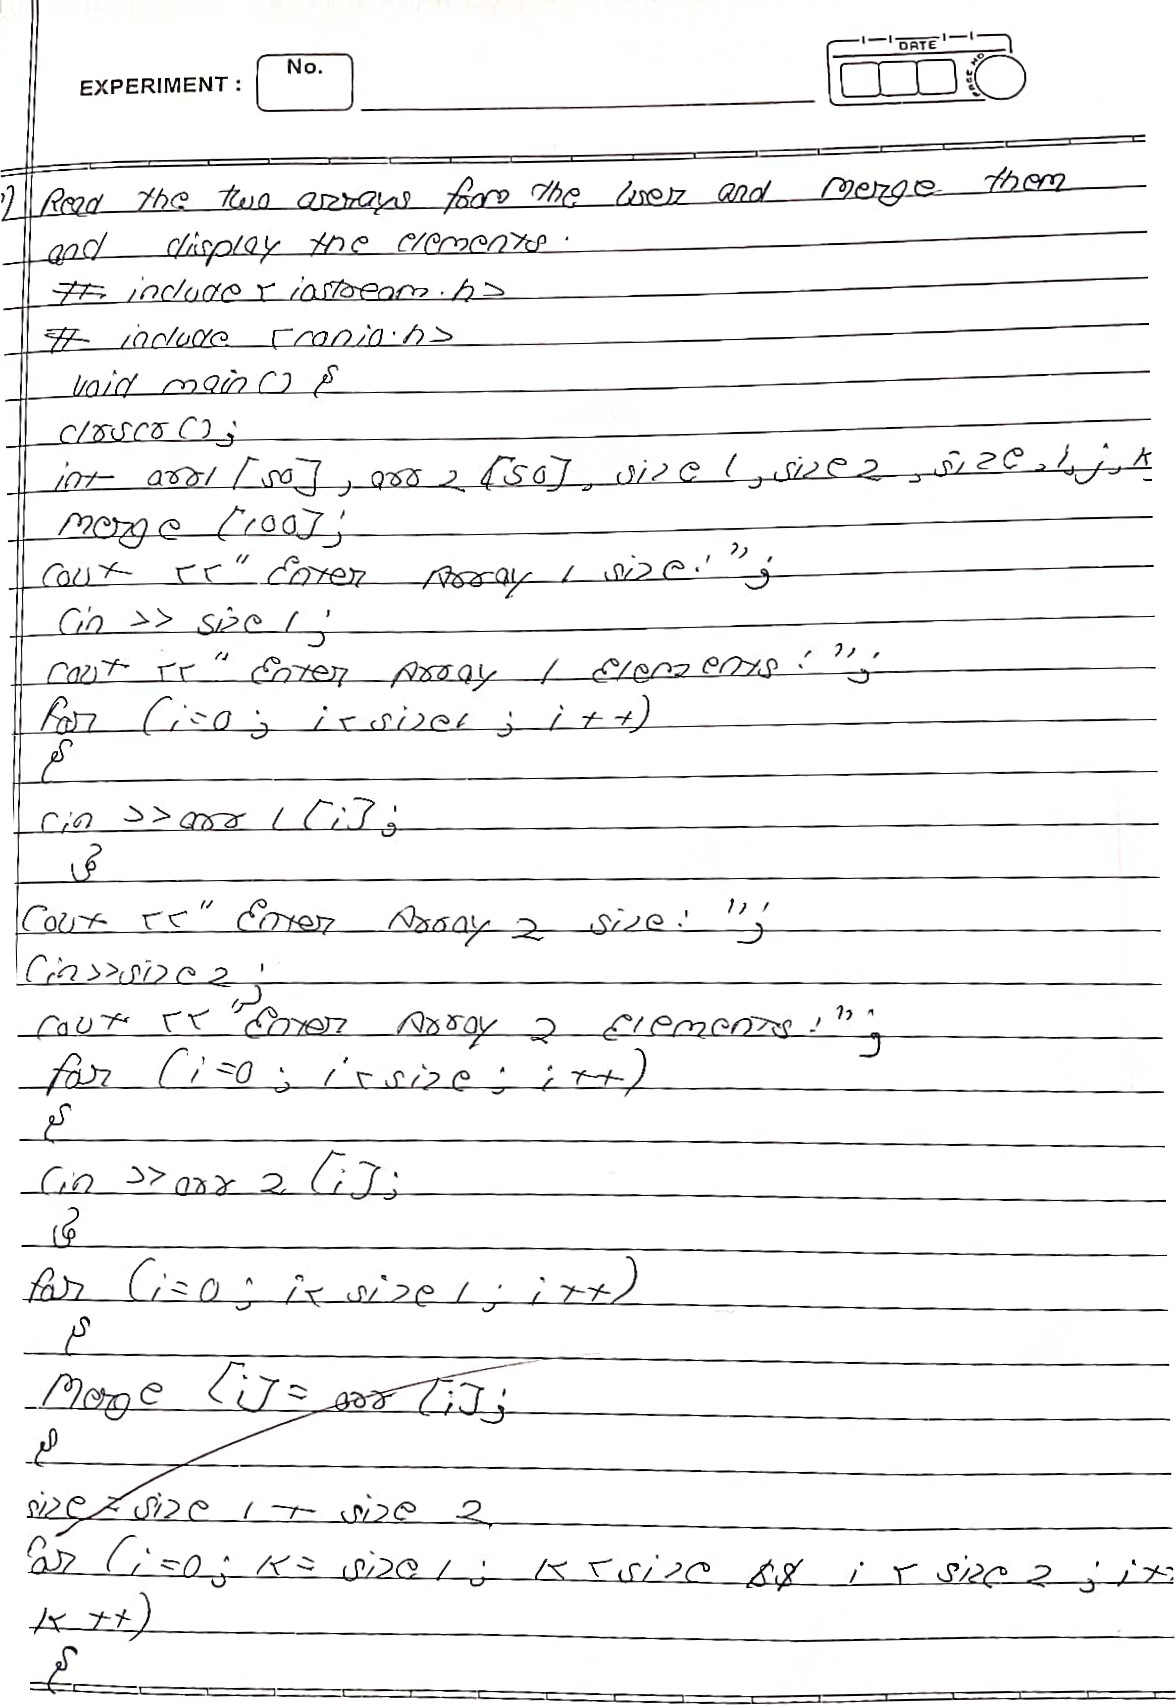 EXPERIMENT :
No.
DATE
PAGE NO
1) Read the two arrays from the user and merge them
and display the elements.
# include < iostream.h>
# include <conio.h>
void main() {
clrscr();
int arr1 [50], arr 2 [50], size 1, size 2, size, i, j, k
merge [100];
cout << " Enter Array 1 size: ";
Cin >> size 1;
cout << " Enter Array 1 Elements: ";
for (i=0; i< size1; i++)
{
cin >>arr 1 [i];
}
Cout << " Enter Array 2 size: ";
Cin>>size 2;
cout << "Enter Array 2 Elements: ";
for (i=0; i<size; i++)
{
Cin >>arr 2 [i];
}
for (i=0; i< size 1; i++)
{
Merge [i]= arr [i];
}
size = size 1 + size 2
for (i=0; k= size 1; k<size && i < size 2; i+
k ++)
{